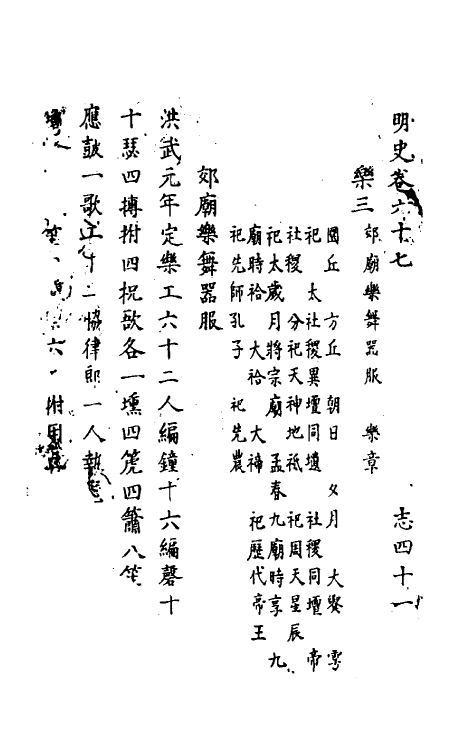 明史卷六十七 志四十一
樂三 郊廟樂舞器服 樂章
圜丘 方丘 朝日 夕月 大祭 雩
祀 太社稷異壇同壝 社稷同壇 帝
社稷 分祀天神地祇 祀周天星辰
祀太歲月將宗廟 孟春 九廟時享 九
廟時祫 大祫 大禘 祀歷代帝王
祀先師孔子 祀先農
郊廟樂舞器服
洪武元年定樂工六十二人編鐘十六編磬十
十瑟四搏拊四柷敔各一壎四箎四簫八笙
應鼓一歌工十二協律郎一人執
六 附